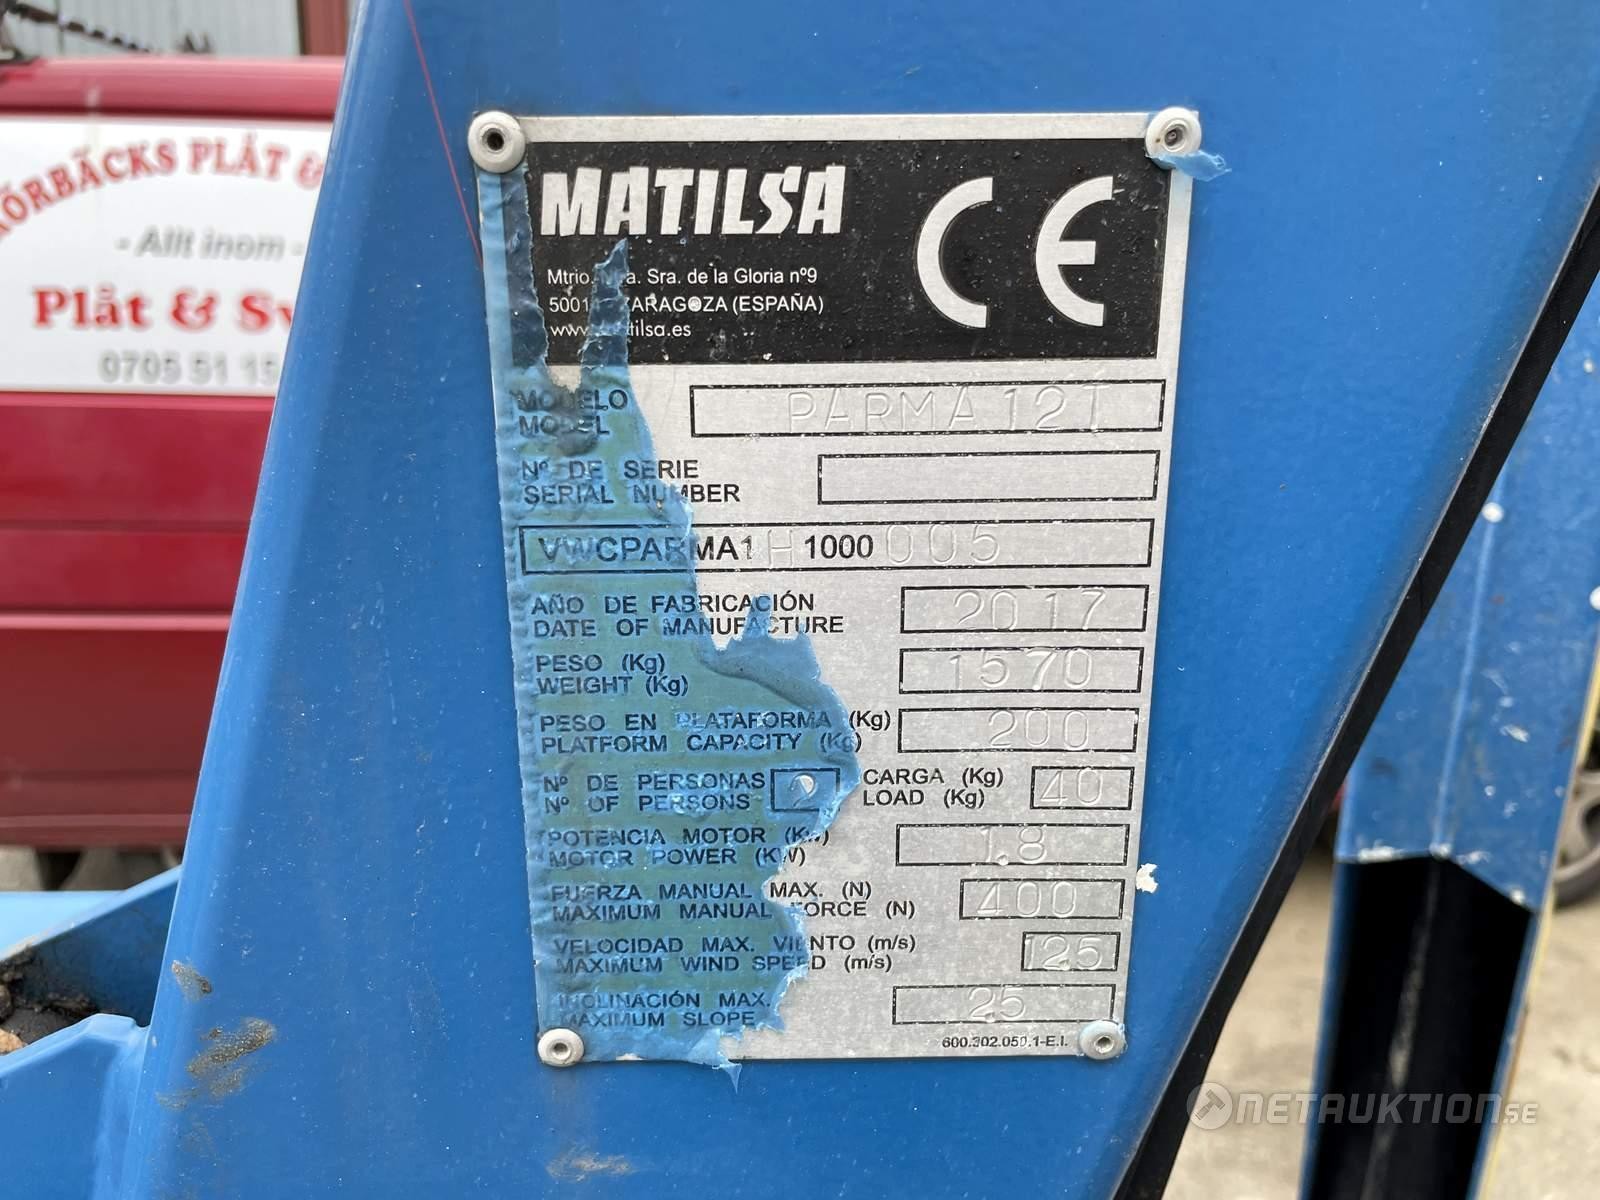 KÖRBÄCKS PLÅT &
- Allt inom -
Plåt & Sv
0705 51 15
MATILSA
CE
Mtrio. Sra. de la Gloria nº9
ZARAGOZA (ESPAÑA)
MODELO
MODEL
PARMA 12T
Nº DE SERIE
SERIAL NUMBER
VWCPARMA1 H 1000 005
AÑO DE FABRICACIÓN
DATE OF MANUFACTURE
2017
PESO (Kg)
WEIGHT (Kg)
1570
PESO EN PLATAFORMA (Kg)
PLATFORM CAPACITY (Kg)
200
Nº DE PERSONAS
Nº OF PERSONS
2
CARGA (Kg)
LOAD (Kg)
40
POTENCIA MOTOR (Kw)
MOTOR POWER (KW)
1.8
FUERZA MANUAL MAX. (N)
MAXIMUM MANUAL FORCE (N)
400
VELOCIDAD MAX. VIENTO (m/s)
MAXIMUM WIND SPEED (m/s)
125
INCLINACIÓN MAX.
MAXIMUM SLOPE
25
600.302.050.1-E.I.
NETAUKTION.SE